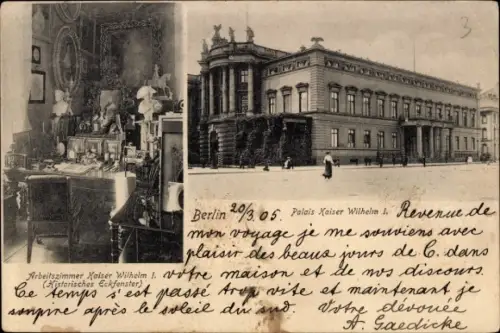 3
Berlin 20/3. 05 Palais Kaiser Wilhelm I.
Revenue de
mon voyage je me souviens avec
plaisir des beaux jours de C. dans
Arbeitszimmer Kaiser Wilhelm I.
(Historisches Eckfenster)
votre maison et de nos discours.
Ce temps s'est passé trop vite et maintenant je
soupire après le soleil du sud. Votre dévouée
A. Gaedicke